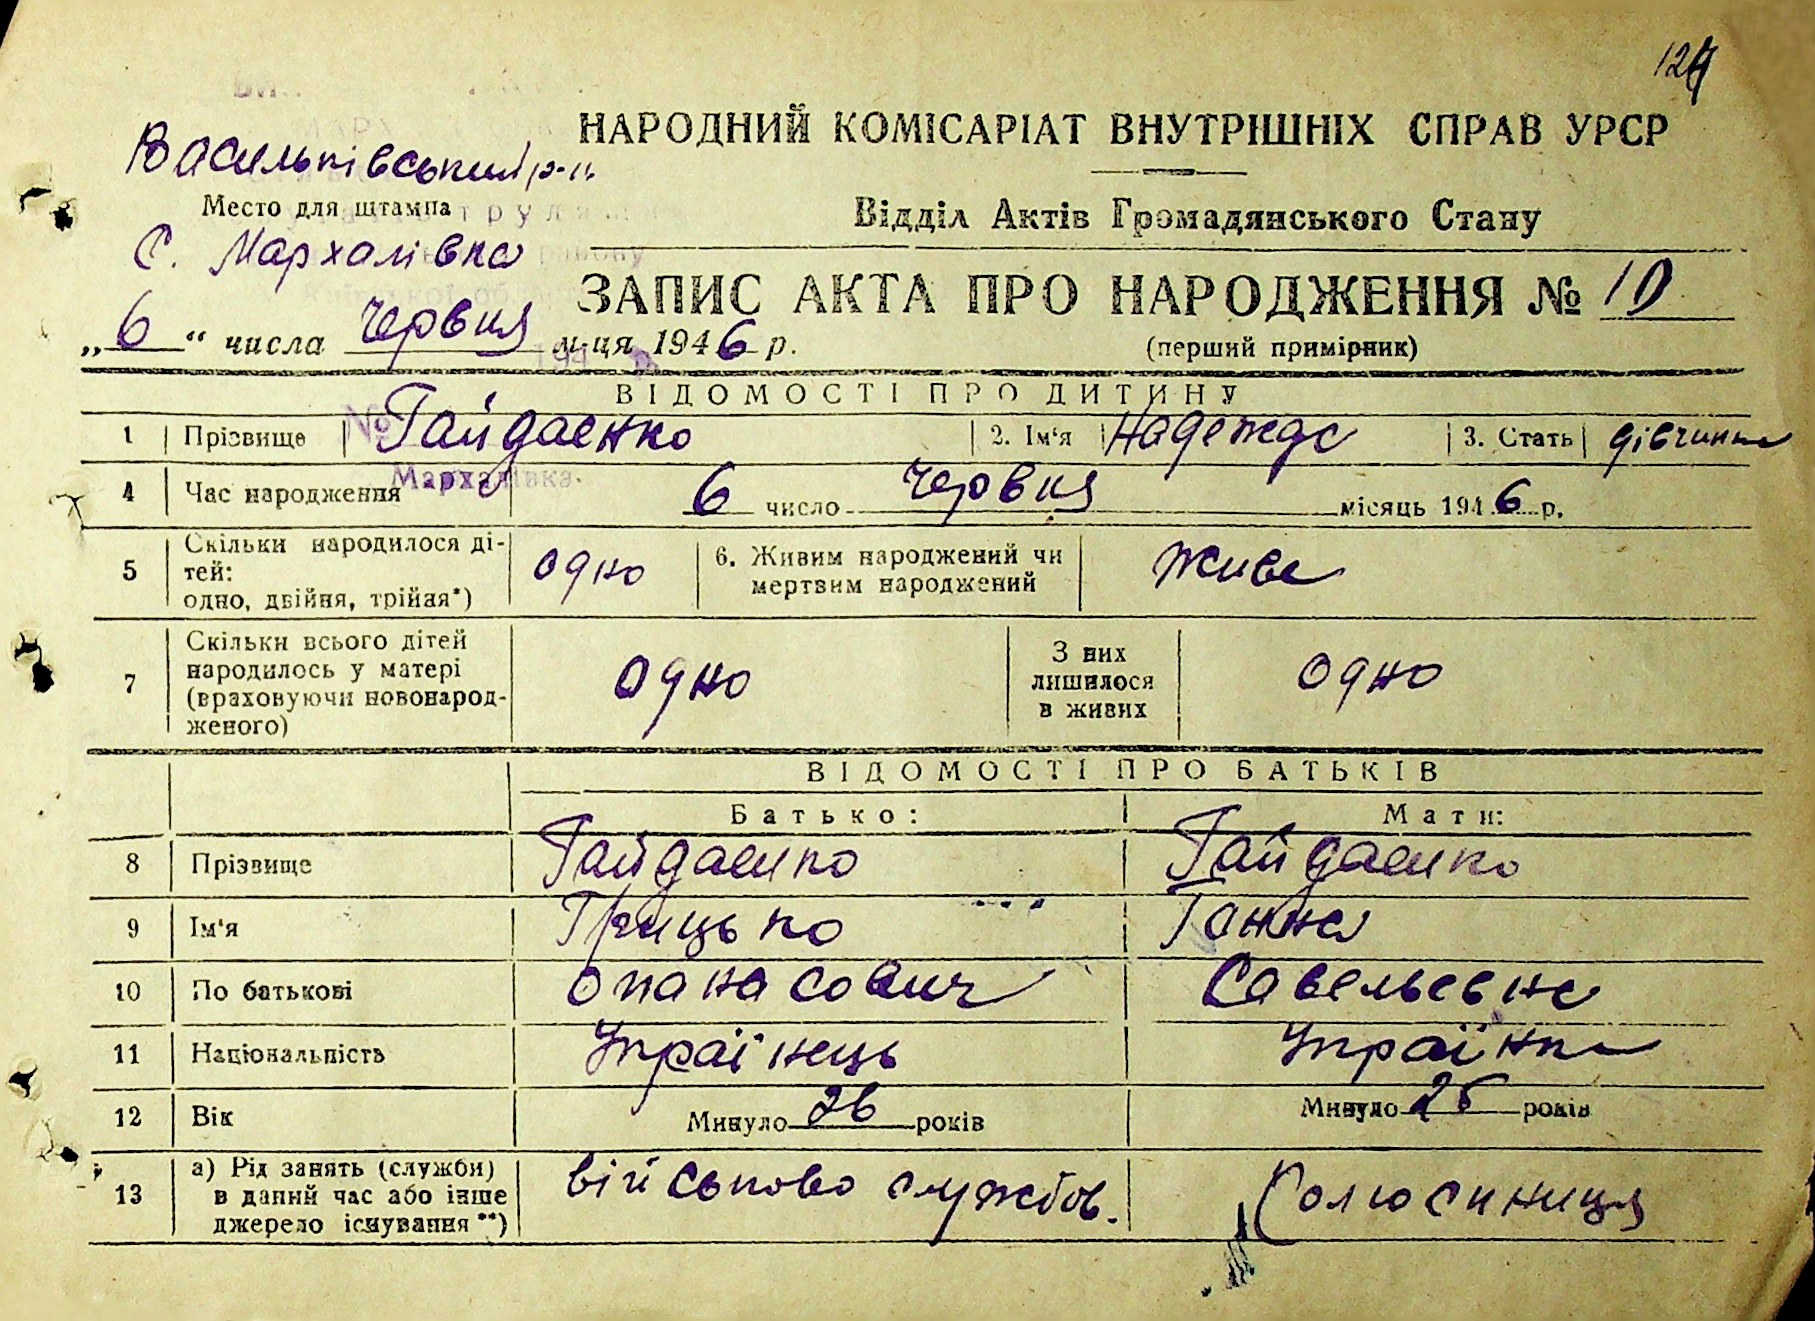 124
НАРОДНИЙ КОМІСАРІАТ ВНУТРІШНІХ СПРАВ УРСР
Васильківський р-н
Место для штампа
Відділ Актів Громадянського Стану
С. Мархалівка
ЗАПИС АКТА ПРО НАРОДЖЕННЯ № 10
„6“ числа Червня м-ця 1946 р.
(перший примірник)
ВІДОМОСТІ ПРО ДИТИНУ
1 Прізвище Гайдаенко 2. Ім'я Надежда 3. Стать дівчинка
Мархалівка
4 Час народження 6 число Червня місяць 1946 р.
5 Скільки народилося ді-
тей:
одно, двійня, трійня*) одно 6. Живим народжений чи
мертвим народжений живе
7 Скільки всього дітей
народилось у матері
(враховуючи новонарод-
женого) одно З них
лишилося
в живих одно
ВІДОМОСТІ ПРО БАТЬКІВ
Батько: Мати:
8 Прізвище Гайдаенко Гайдаенко
9 Ім'я Грицько Ганна
10 По батькові Опанасович Савельевна
11 Національність Українець Українка
12 Вік Минуло 26 років Минуло 25 років
13 а) Рід занять (служби)
в даний час або інше
джерело існування**) військово службов.